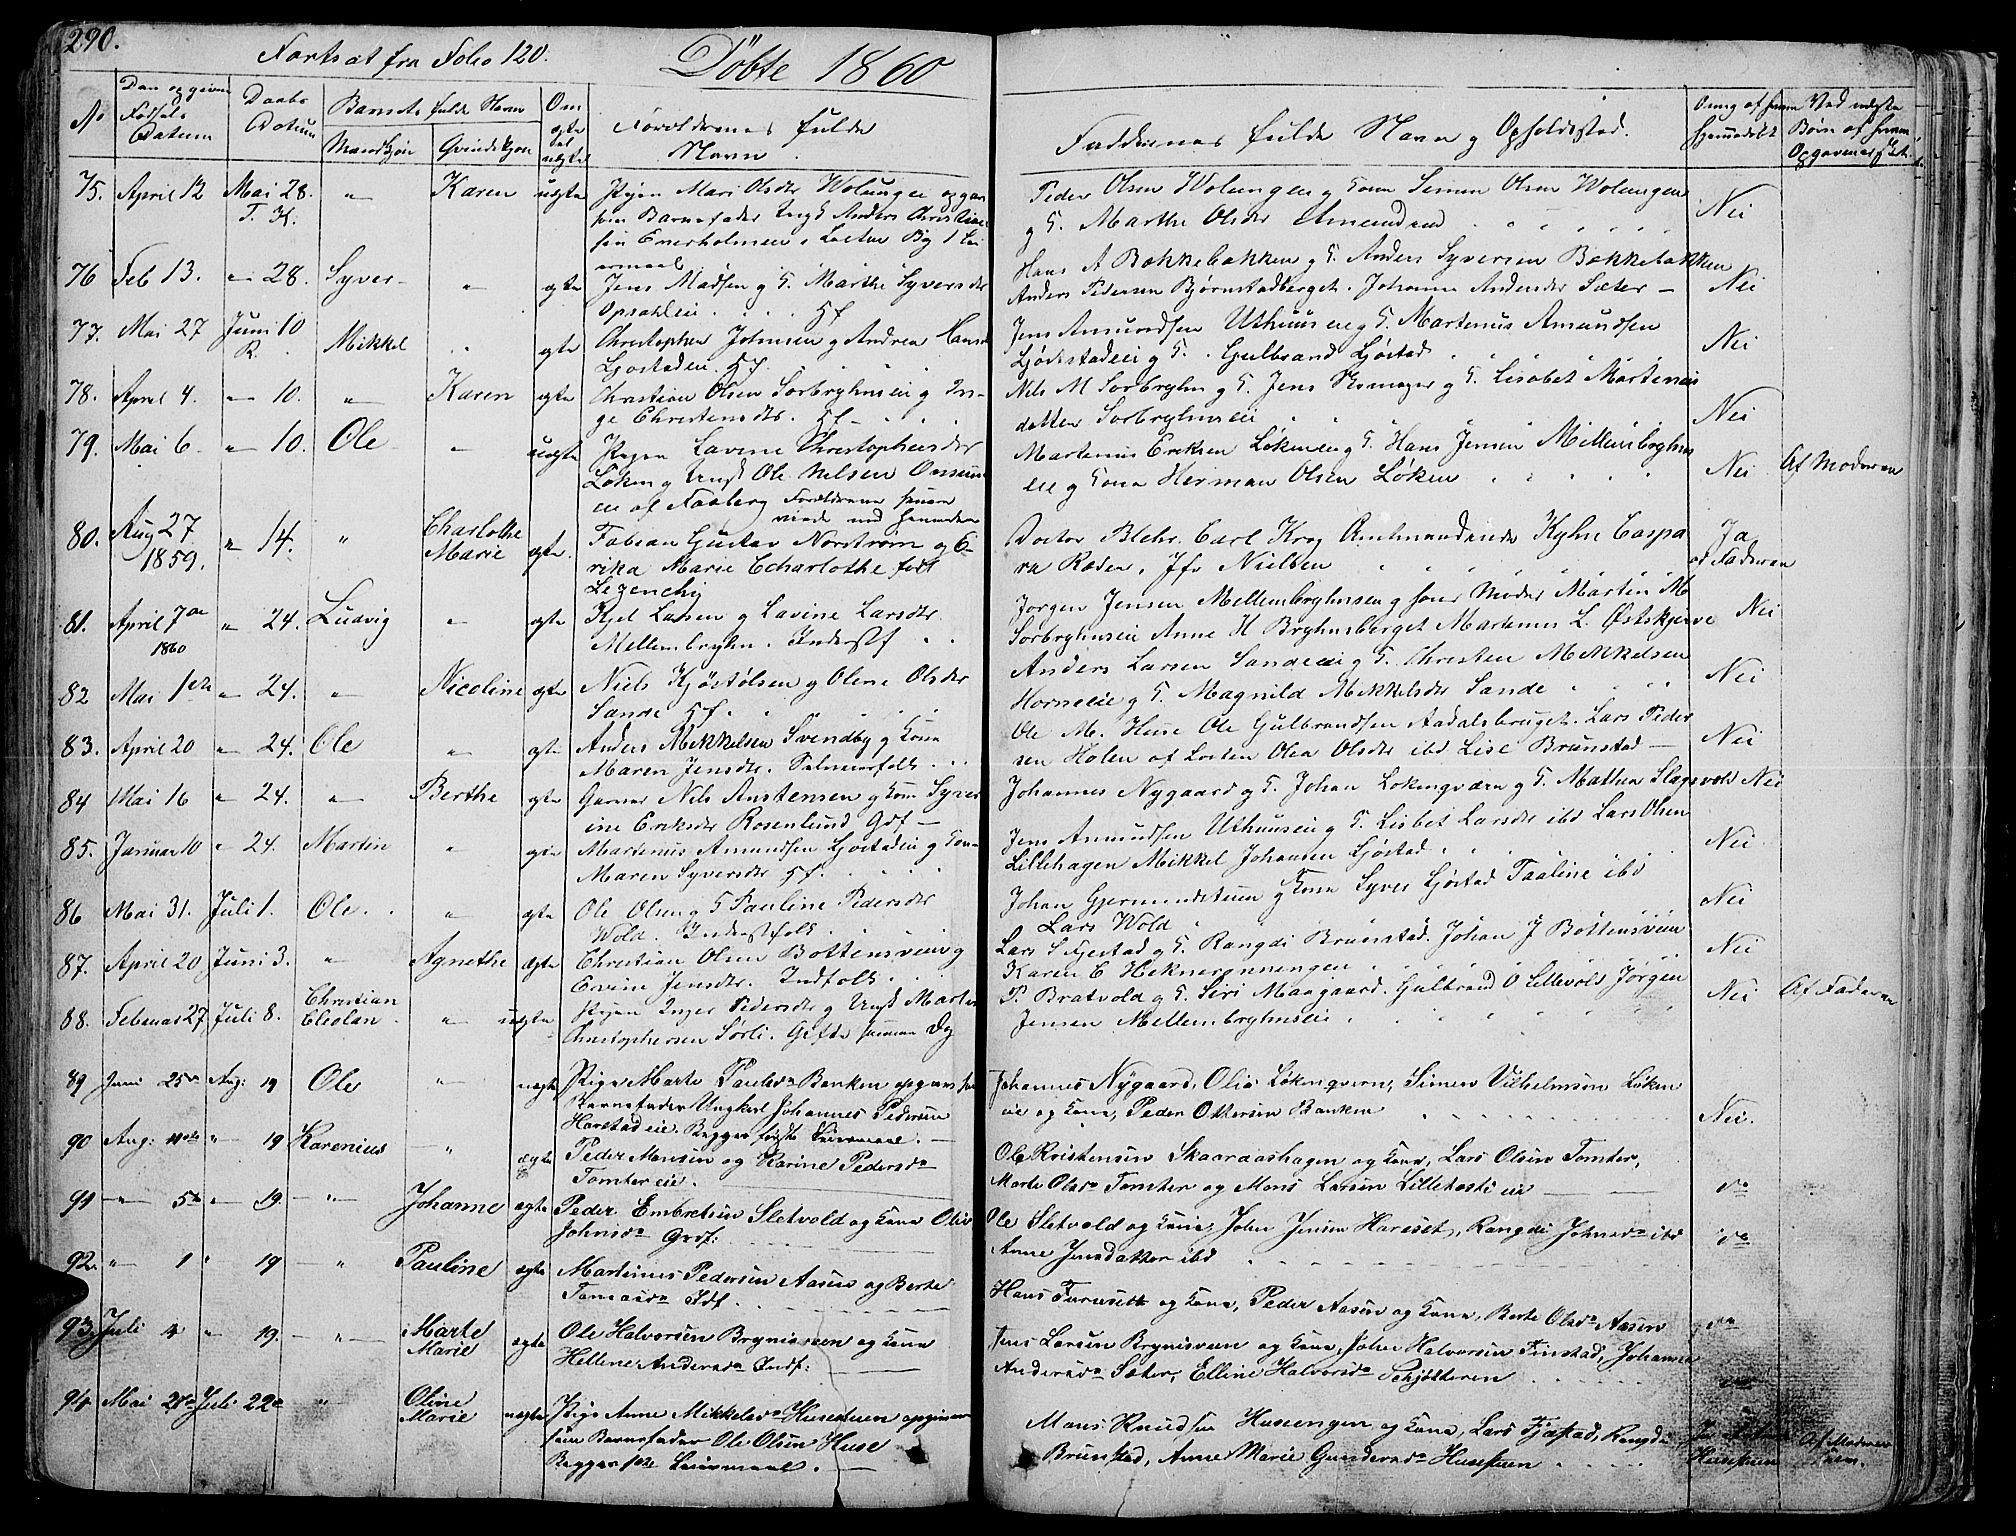 290.
Fortsat fra Folio 120.
Døbte 1860
No
Den opgivne Fødsels Datum
Daabs Datum
Barnets fulde Navn
Mandkjøn
Qvindekjøn
Om ægte el uægte
Forældrenes fulde Navn
Faddernes fulde Navn og Opholdssted.
Om af hjemmedøbt
Ved uægte Børn af hvem Opgaven er skeet.
75. April 12 Mai 28. T. K. " Karen uægte
Pigen Mari Olsdtr Wolungen opgav
som Barnefader Ungk Anders Christian
sen Enerholmen i Løeten Bg 1 Lei
ermaal
Peder Olsen Wolungen g Kone Simen Olsen Wolungen
g K. Marthe Olsdtr Amundrud
Nei
76 Feb 13. " 28. Syver " ægte
Jens Madsen g K. Marthe Syversdtr
Opsahleie
Hans A Bækkebakken g K. Anders Syversen Bækkebakken
Anders Pedersen Bjørnstadberget. Johanne Andersdtr Sæter
Nei
77. Mai 27 Juni 10 R. Mikkel " ægte
Christopher Johnsen g Andrea Hansd
Ljøstadeie.
Jens Amundsen Uthuuseie g K. Martinus Amundsen
Ljøstadeie g K. Gulbrand Ljøstad
Nei
78. April 4. " 10. " Karen ægte
Christian Olsen Sorbryhnseie g In-
ge Christensdtr.
Nils M Sorbryhn g K. Jens Skomager g K. Lisabet Martinus
datter Sorbryhnseie
Nei
79. Mai 6 " 10. Ole " uægte
Pigen Lavine Christophersdtr
Løken g Ungk Ole Nelsen Onsum
eie af Faaberg Forældrene
Martinus Eriksen Løkeneie g K. Hans Jensen Mellembryhns
eie g Kone Herman Olsen Løken
Nei Af Moderen
80. Aug 27 1859. " 14. " Charlothe Marie ægte.
Fabian Gustav Norstrøm og E-
rika Marie Echarlothe født
Legenchig
Doctor Blehr. Carl Krog Amtmandinde Kyhn Caspa
ra Ræder, Jfr Nielsen
Ja af Faderen
81. April 7de 1860 " 24. Ludvig " ægte
Kjel Larsen g Lavine Larsdtr
Mellembryhn. Inderstf
Jørgen Jensen Mellembryhnseie g hans Moder Martin M
Sorbryhnseie Anne H Bryhnsberget Martinus L. Østskjerve
Nei
82 Mai 1ste " 24. " Nicoline ægte
Niels Kjøstolsen g Olene Olsdtr
Sande
Anders Larsen Sandeeie g K. Christen Mikkelsen
Horneeie g K. Magnild Mikkelsdtr Sande
Nei
83. April 20 " 24. Ole " ægte
Anders Mikkelsen Svendby g Kone
Maren Jensdtr.
Ole M. Huse Ole Gulbrandsen Aadalsbruget. Lars Peder
sen Holen af Løeten Olea Olsdtr ibd Lise Brunstad
Nei
84 Mai 16 " 24. " Berthe ægte
Garver Nils Austensen g Kone Syver
ine Eriksdtr Rosenlund Gdf
Johannes Nygaard g K. Johan Løkenqværn g K. Mathea Slagsvold Nei
85. Januar 10 " 24. Martin " ægte
Martinus Amundsen Ljøstadeie g Kone
Maren Syversdtr
Jens Amundsen Uthuuseie g K. Lisbet Larsdtr ibd Lars Olsen
Lillehagen Mikkel Johansen Ljøstad
Nei
86 Mai 31. Juli 1. Ole. " ægte
Ole Olsen g K Pauline Pedersdtr
Wold. Inderstfolk
Johan Gjermundstuen g Kone Syver Ljøstad Pauline ibd
Lars Wold
Nei
87. April 20 Juni 3. " Agnethe ægte
Christian Olsen Bottensveen g
Ervine Jensdtr. Indfolk
Lars S Fjestad g K. Rangdi Brunstad. Johan J Bottensveen
Karen C Heknerønningen
Nei
88. Februar 27 Juli 8. Christian Eliolan " uægte
Pigen Inger Pedersdtr g Ungk Martin
Christophersen Sørli. Gifte samme Dag
P. Bratvold g K. Siri Maagaard. Gulbrand O Lillevold Jørgen
Jensen Mellembryhnseie
Nei Af Faderen
89 Juni 25de Aug: 19 Ole " uægte
Pige Marte Paulsdr Banken opgives som
Barnefader Ungkarl Johannes Pedersen
Harstadeie. Begges første Leiermaal.
Johannes Nygaard, Olia Løkenqvern, Simen Vilhelmsen Løken
eie og kone, Peder Ottersen Banken
Nei.
90 Aug: 11te " 19 Karenius " ægte
Peder Monsen og Karine Pedersdr
Tomtereie.
Ole Kristensen Skaaraashagen og kone, Lars Olsen Tomter,
Marte Olsdr Tomter og Mons Larsen Lilletosti eie
do
91 " 5te " 19. " Johanne ægte
Peder Embretsen Sletvold og kone Olia
Johnsdr Grdf:
Ole Sletvold og kone, John Jensen Harsset, Rangdi Johnsdr ibd
Anne Jensdatter ibd
do
92. " 1 " 19 " Pauline ægte
Martinus Pedersen Aasen og Berte
Tomasdr Idf.
Hans Furuset og kone, Peder Aasen og kone, Berte Olsdr Aasen
do
93. Juli 4 " 19. " Marte Marie ægte
Ole Halvorsen Brynisveen og kone
Helline Andersdr Indf:
Jens Larsen Brynisveen og kone, John Halvorsen Finstad, Johanne
Andersdr Sæter, Elline Halvorsdr Schjøtteren
do
94 Mai Juli 22de " Oline Marie uægte
Pige Anne Mikkelsdr Husestuen opgives
som Barnefader Ole Olsen Huse
Begges 1ste Leiermaal.
Mons Knudsen Huseengen og kone, Lars Fjæstad, Rangdi
Brunstad, Anne Marie Gundersdr Husestuen
Husestuen
Af Moderen